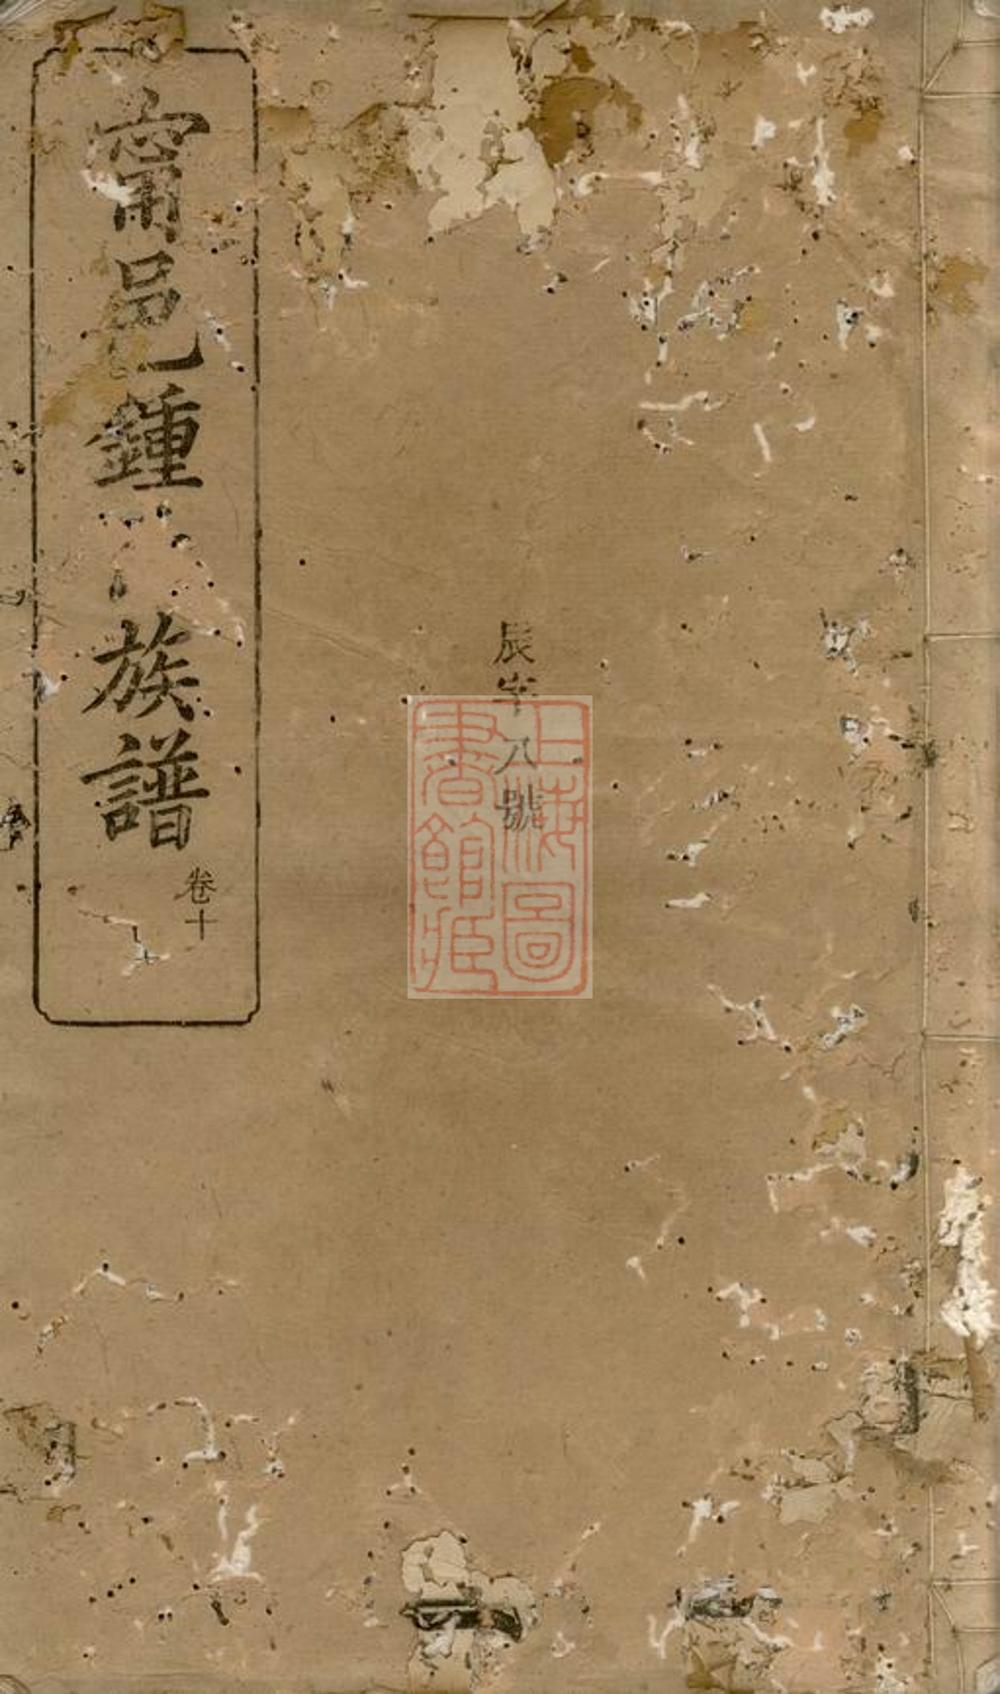 甯邑鍾
族譜
卷十
辰字八號
上海圖書館藏